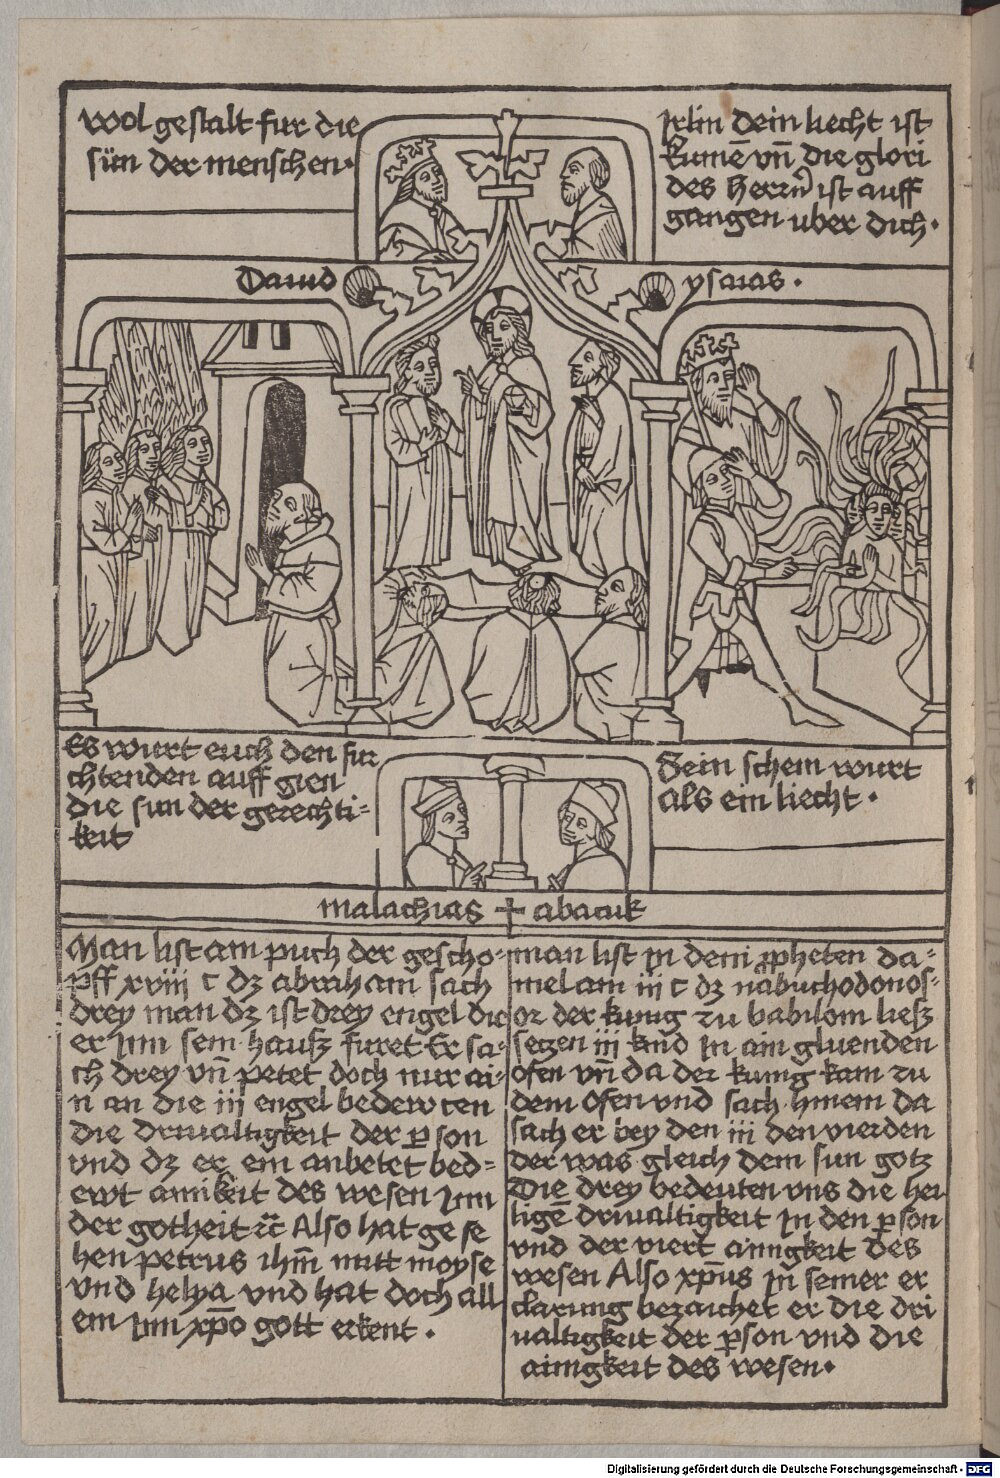 wol gestalt fur die
sün der menschen·
Jrlm dein liecht ist
kumē vñ die glori
des herrn ist auff
gangen uber dich·
Dauid
ysaias·
Es wurt euch den fur
chtenden auff gien
die sun der gerechti=
keit
Sein schein wurt
als ein liecht·
malachias + abacuk
Man list am puch der gescho=
pff xviii c dz abraham sach
drey man dz ist drey engel die
er Inn sein hausz furet Er sa=
ch drey vñ petet doch nur ai=
n an die iij engel bedewten
die driualtigkeit der pson
vnd dz er ein anbetet bed=
ewt ainikeit des wesen Inn
der gotheit ⁊c̃ Also hat gese
hen petrus ihm̄ mitt moyse
vnd helya vnd hat doch all
ein Inn xp̄o gott erkent·
man list In dem ppheten da=
niel am iij c dz nabuchodonos=
or der kunig zu babilom liesz
setzen iij kind In ain gluenden
ofen vñ da der kunig kam zu
dem ofen vnd sach hinein da
sach er bey den iii den vierden
der was gleich dem sun gotz
Die drey bedeuten vns die hei
ligē driualtigkeit In den pson
vnd der viert ainigkeit des
wesen Also xp̄us In seiner er
clarung bezaichet er die dri
ualtigkeit der pson vnd die
ainigkeit des wesen·
Digitalisierung gefördert durch die Deutsche Forschungsgemeinschaft - DFG